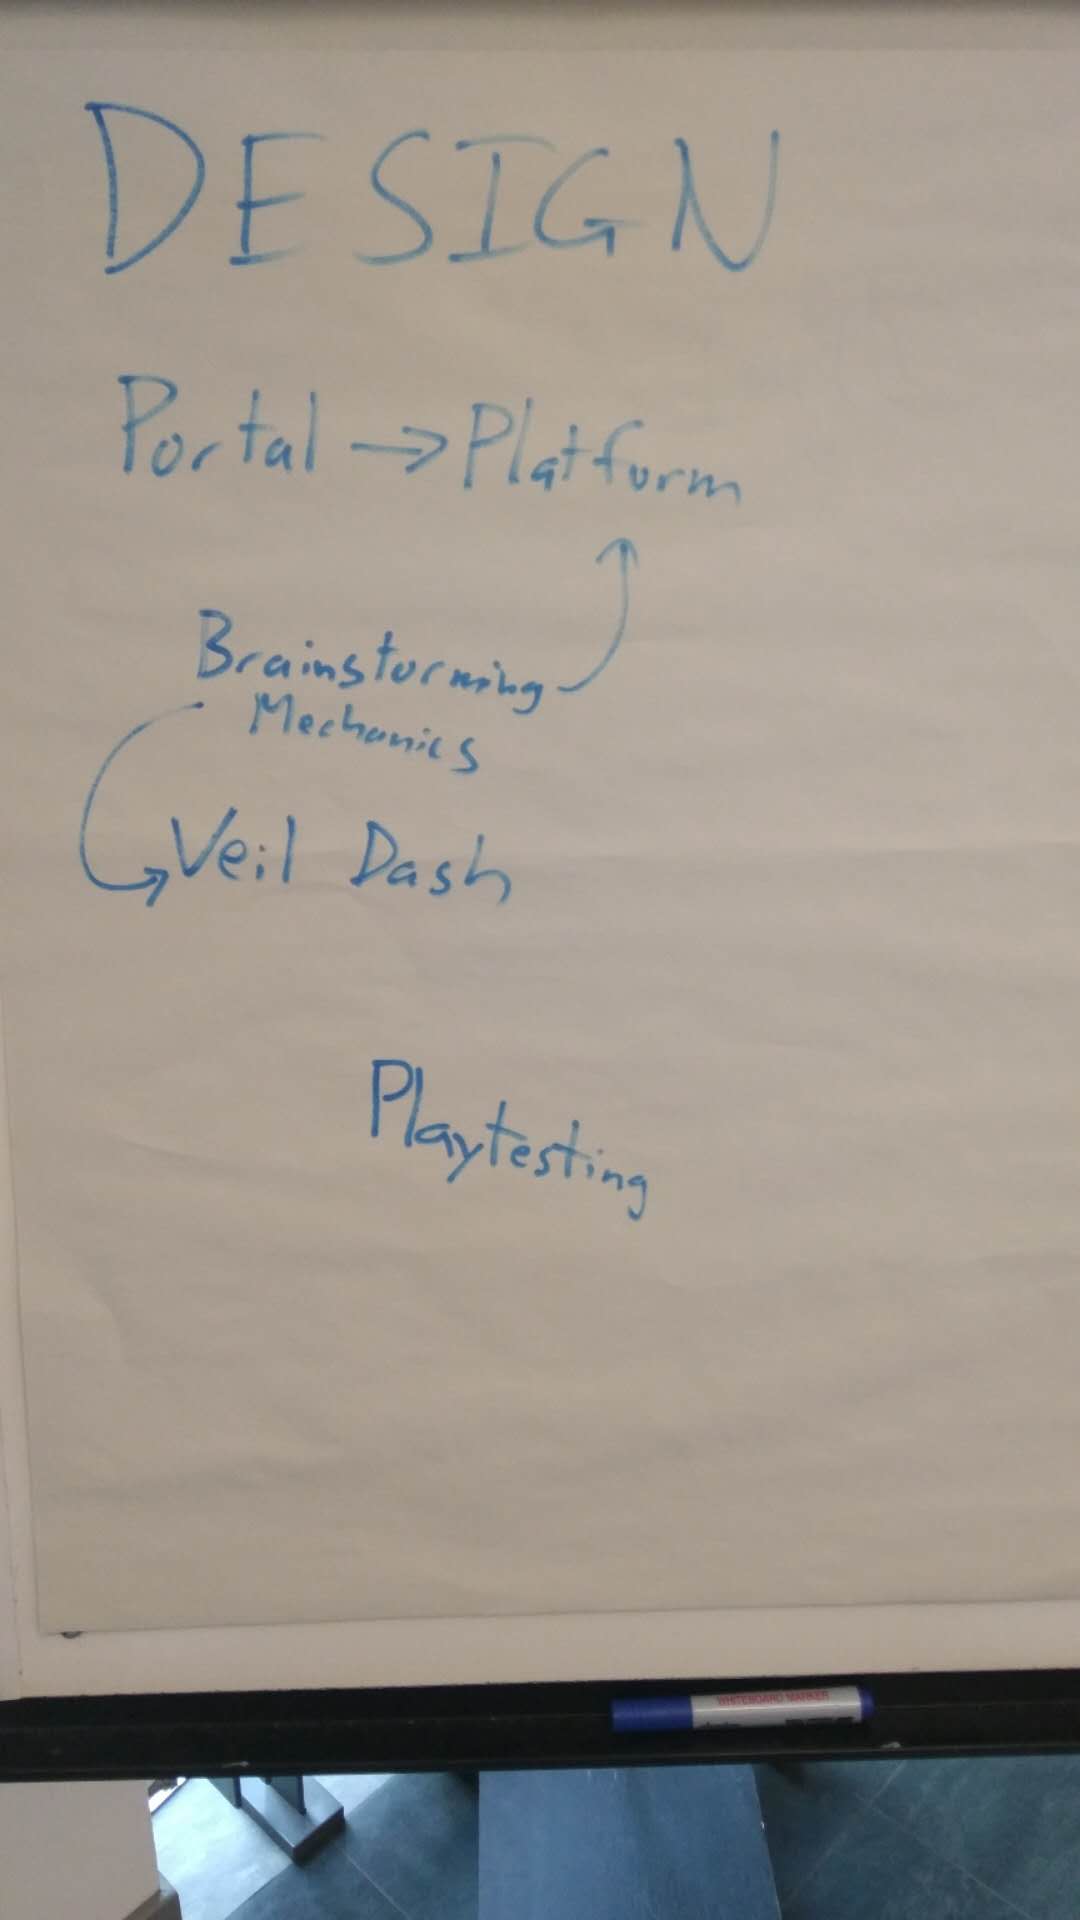 DESIGN
Portal → Platform
Brainstorming
Mechanics
Veil Dash
Playtesting
WHITEBOARD MARKER